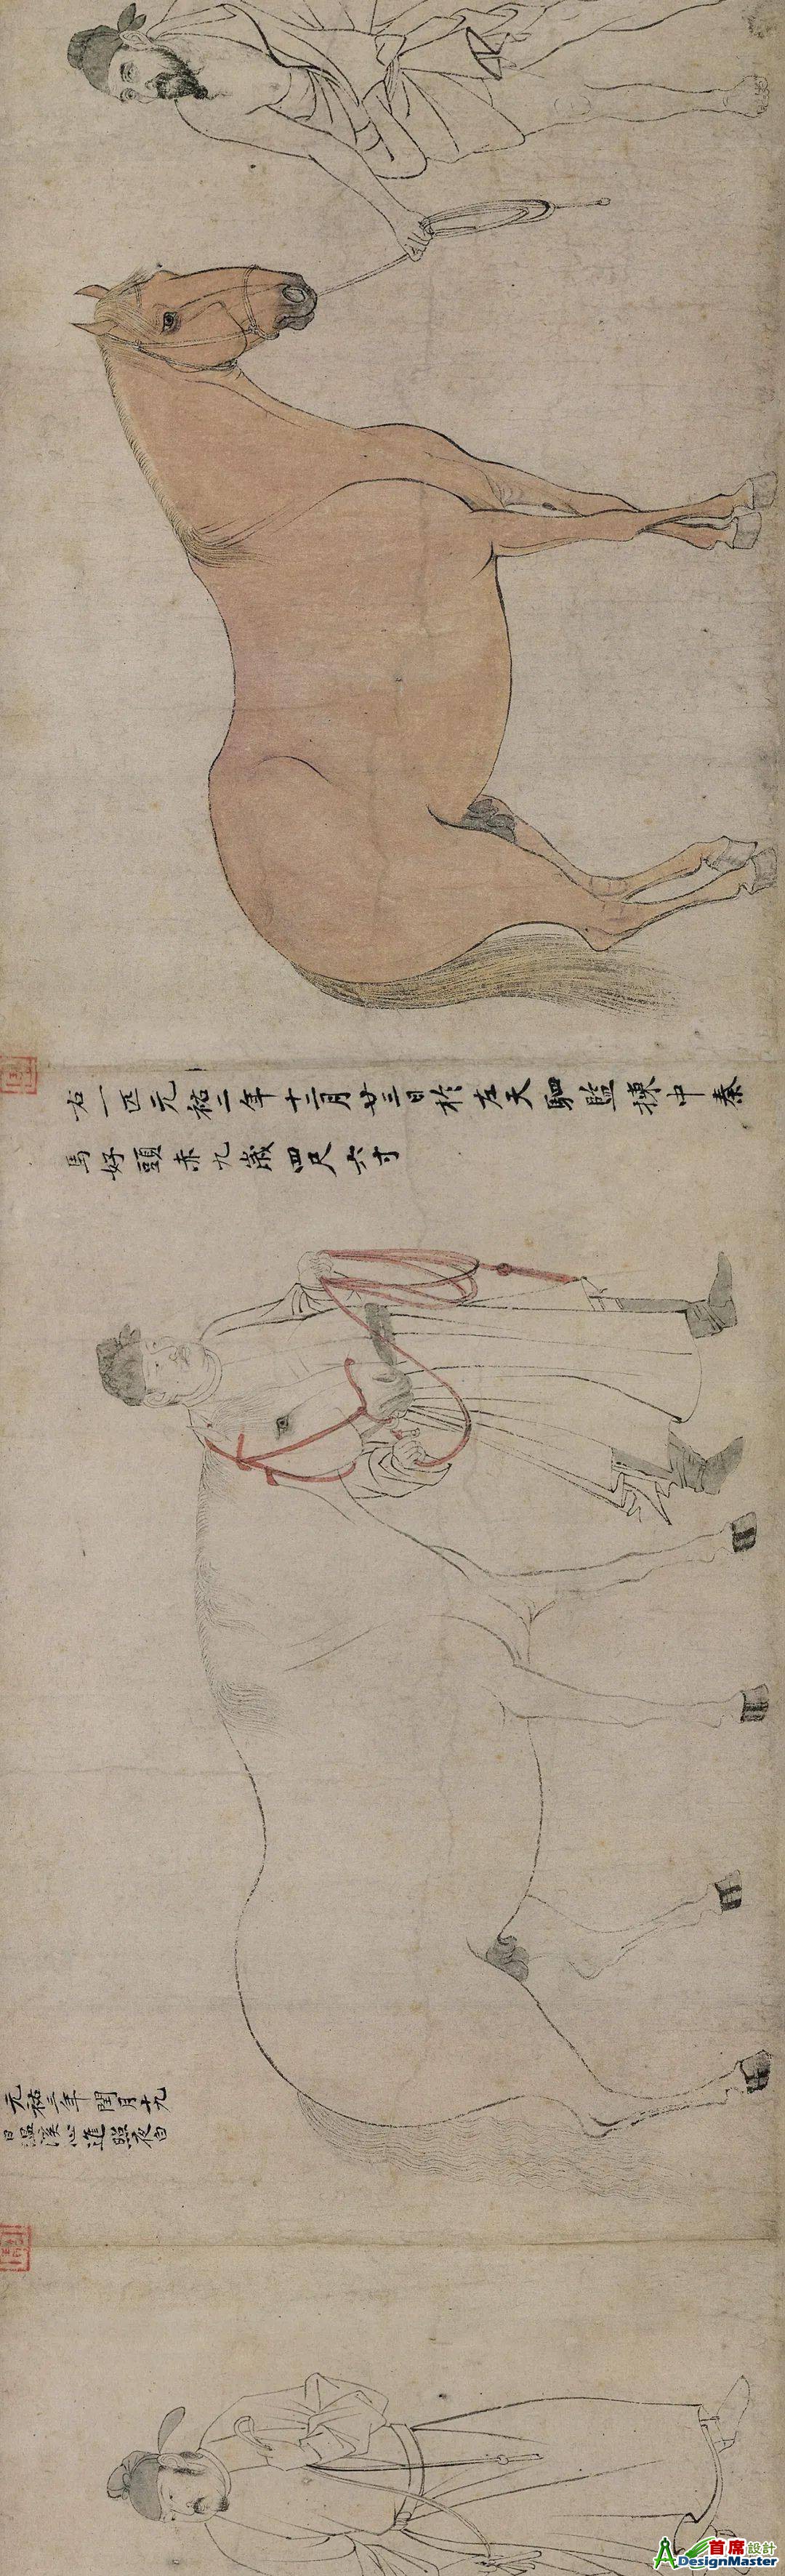 右一匹元祐二年十二月廿三日於左天駟監揀中秦
馬好頭赤九歲四尺六寸
元祐三年閏月十九
日溫溪心進照夜白
首席設計
DesignMaster